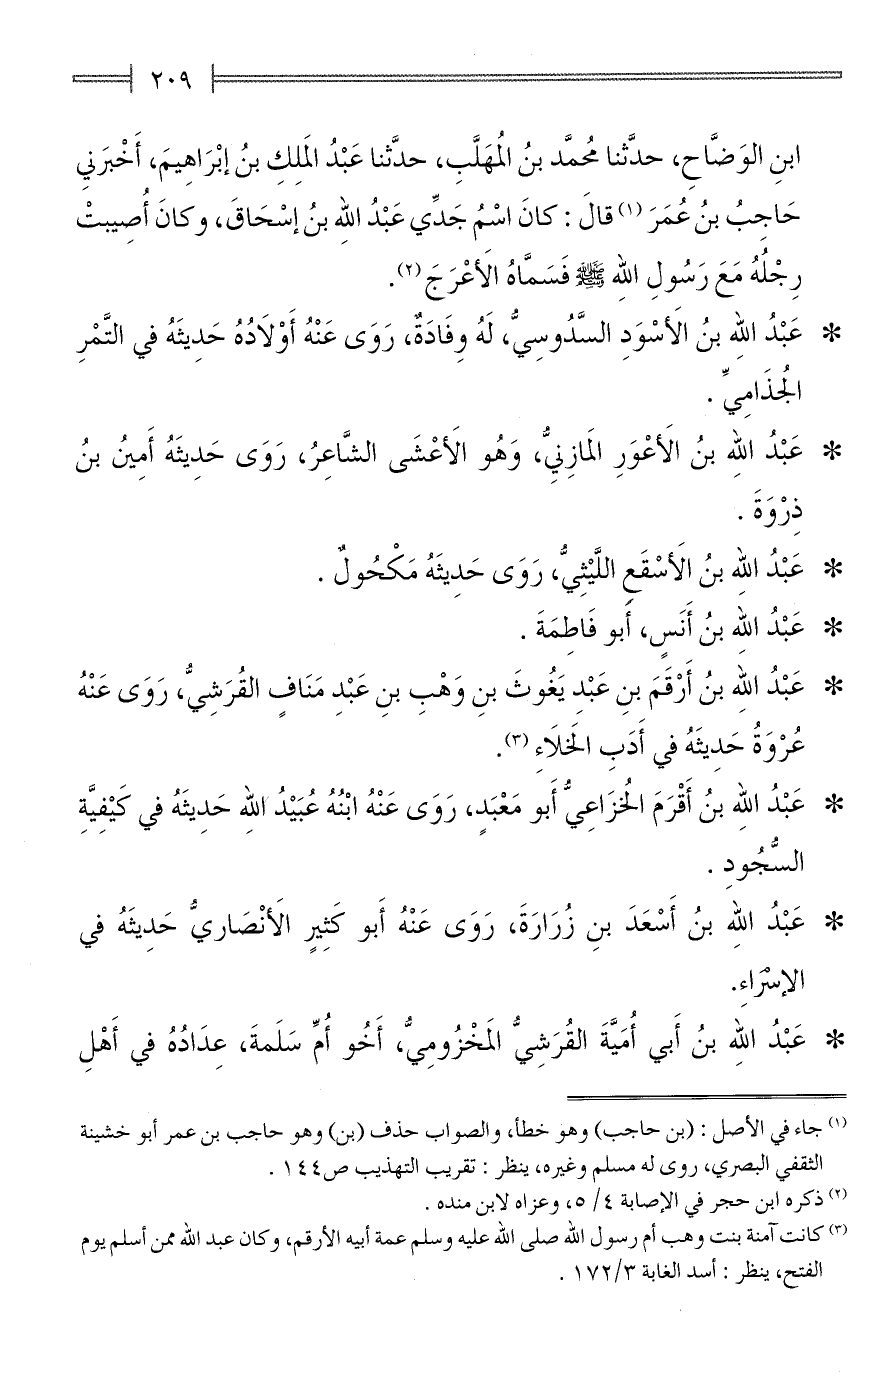 ٢٠٩
ابنِ الوَضَّاحِ، حدَّثنا مُحمَّد بنُ المُهَلَّبِ، حدَّثنا عَبْدُ المَلِكِ بنُ إبْرَاهِيمَ، أَخْبَرَني
حَاجِبُ بنُ عُمَرَ (١) قالَ : كانَ اسْمُ جَدِّي عَبْدُ اللهِ بنُ إسْحَاقَ، وكانَ أُصِيبتْ
رِجْلُهُ مَعَ رَسُولِ اللهِ ﷺ فَسَمَّاهُ الأَعْرَجَ (٢).
* عَبْدُ اللهِ بنُ الأَسْوَدِ السَّدُوسِيُّ، لَهُ وِفَادَةٌ، رَوَى عَنْهُ أَوْلَادُهُ حَدِيثَهُ في التَّمْرِ
الجُذَامِيِّ .
* عَبْدُ اللهِ بنُ الأَعْوَرِ المَازِنِيُّ، وَهُو الأَعْشَى الشَّاعِرُ، رَوَى حَدِيثَهُ أَمِينُ بنُ
ذِرْوَةَ .
* عَبْدُ اللهِ بنُ الأَسْقَعِ اللَّيْثِيُّ، رَوَى حَدِيثَهُ مَكْحُولٌ .
* عَبْدُ اللهِ بنُ أَنَسٍ، أَبو فَاطِمَةَ .
* عَبْدُ اللهِ بنُ أَرْقَمَ بنِ عَبْدِ يَغُوثَ بنِ وَهْبِ بنِ عَبْدِ مَنَافٍ القُرَشِيُّ، رَوَى عَنْهُ
عُرْوَةُ حَدِيثَهُ في أَدَبِ الخَلَاءِ (٣).
* عَبْدُ اللهِ بنُ أَقْرَمَ الخُزَاعِيُّ أَبو مَعْبَدٍ، رَوَى عَنْهُ ابْنُهُ عُبَيْدُ اللهِ حَدِيثَهُ في كَيْفِيَّةِ
السُّجُودِ .
* عَبْدُ اللهِ بنُ أَسْعَدَ بنِ زُرَارَةَ، رَوَى عَنْهُ أَبو كَثِيرٍ الأَنْصَارِيُّ حَدِيثَهُ في
الإسْرَاءِ.
* عَبْدُ اللهِ بنُ أَبي أُمَيَّةَ القُرَشِيُّ المَخْزُومِيُّ، أَخُو أُمِّ سَلَمةَ، عِدَادُهُ في أَهْلِ
(١) جاء في الأصل : (بن حاجب) وهو خطأ، والصواب حذف (بن) وهو حاجب بن عمر أبو خشينة
الثقفي البصري، روى له مسلم وغيره، ينظر : تقريب التهذيب ص١٤٤ .
(٢) ذكره ابن حجر في الإصابة ٤/ ٥، وعزاه لابن منده .
(٣) كانت آمنة بنت وهب أم رسول الله صلى الله عليه وسلم عمة أبيه الأرقم، وكان عبد الله ممن أسلم يوم
الفتح، ينظر : أسد الغابة ٣/ ١٧٢ .